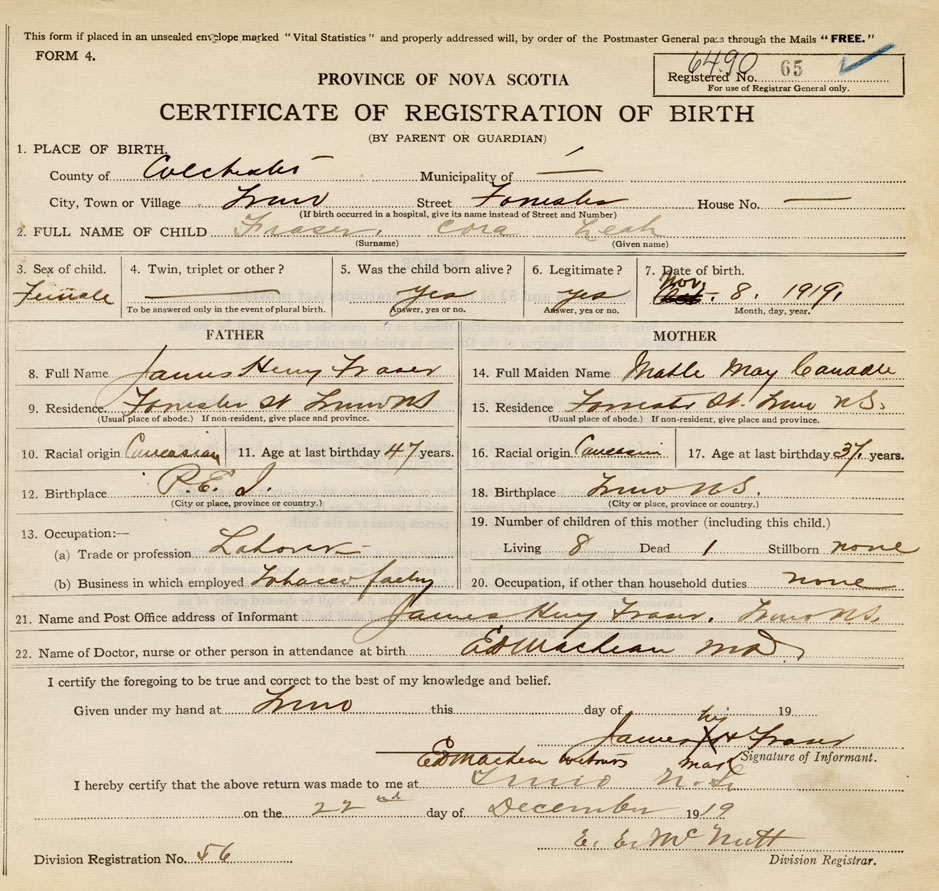 This form if placed in an unsealed envelope marked "Vital Statistics" and properly addressed will, by order of the Postmaster General pass through the Mails "FREE."
FORM 4.
6490
Registered No. 65
For use of Registrar General only.
PROVINCE OF NOVA SCOTIA
CERTIFICATE OF REGISTRATION OF BIRTH
(BY PARENT OR GUARDIAN)
1. PLACE OF BIRTH.
County of Colchester Municipality of —
City, Town or Village Truro Street Forrester House No. —
(If birth occurred in a hospital, give its name instead of Street and Number)
2. FULL NAME OF CHILD Fraser, Cora Leah
(Surname) (Given name)
3. Sex of child. 4. Twin, triplet or other? 5. Was the child born alive? 6. Legitimate? 7. Date of birth.
Female — yes yes Nov. 8. 1919.
To be answered only in the event of plural birth. Answer, yes or no. Answer, yes or no. Month, day, year.
FATHER MOTHER
8. Full Name James Henry Fraser 14. Full Maiden Name May
9. Residence Forrester St Truro NS 15. Residence Forrester St. Truro N.S.
(Usual place of abode.) If non-resident, give place and province. (Usual place of abode.) If non-resident, give place and province.
10. Racial origin Caucasian 11. Age at last birthday 47 years. 16. Racial origin Caucasian 17. Age at last birthday 37 years.
12. Birthplace P.E.I. 18. Birthplace Truro N.S.
(City or place, province or country.) (City or place, province or country.)
13. Occupation:— 19. Number of children of this mother (including this child.)
(a) Trade or profession Laborer Living 8 Dead 1 Stillborn none
(b) Business in which employed Tobacco factry 20. Occupation, if other than household duties none
21. Name and Post Office address of Informant James Henry Fraser. Truro NS.
22. Name of Doctor, nurse or other person in attendance at birth Ed MacLean MD
I certify the foregoing to be true and correct to the best of my knowledge and belief.
Given under my hand at Truro this day of 19
his
James X H Fraser
mark
Signature of Informant.
Ed MacLean Witness
I hereby certify that the above return was made to me at Truro N.S.
on the 22nd day of December 1919
E. E. McNutt
Division Registration No. 56 Division Registrar.